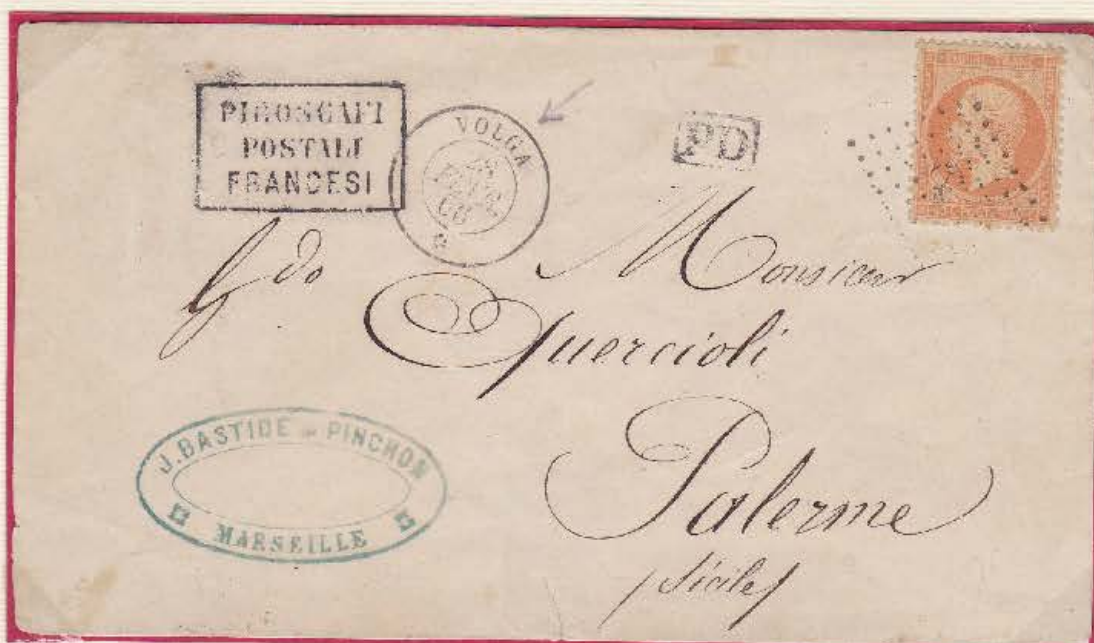 PIROSCAFI
POSTALI
FRANCESI
VOLGA
66
PD
Monsieur
Quercioli
Palerme
/Sicile/
J. BASTIDE PINCHON
MARSEILLE